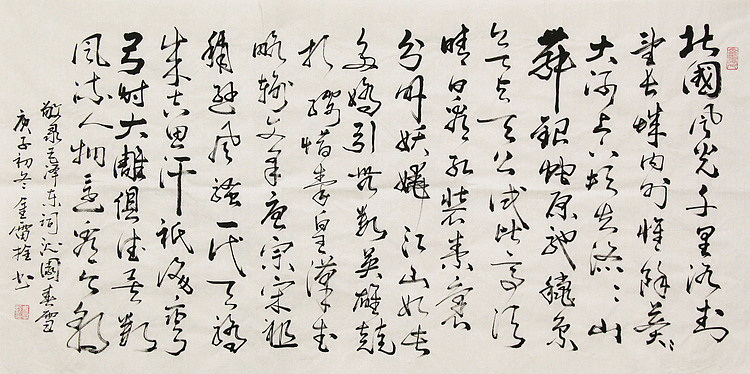 北國風光千里冰封
望长城内外惟餘莽莽
大河上下頓失滔滔山
舞銀蛇原馳蠟象
欲与天公试比高须
晴日看红裝素裹
分外妖嬈江山如此
多嬌引無數英雄競
折腰惜秦皇漢武
略輸文采唐宗宋祖
稍遜風騷一代天驕
成吉思汗祇識彎
弓射大雕俱往矣數
風流人物還看今朝
敬录毛泽东词沁園春雪
庚子初冬金雷拴书